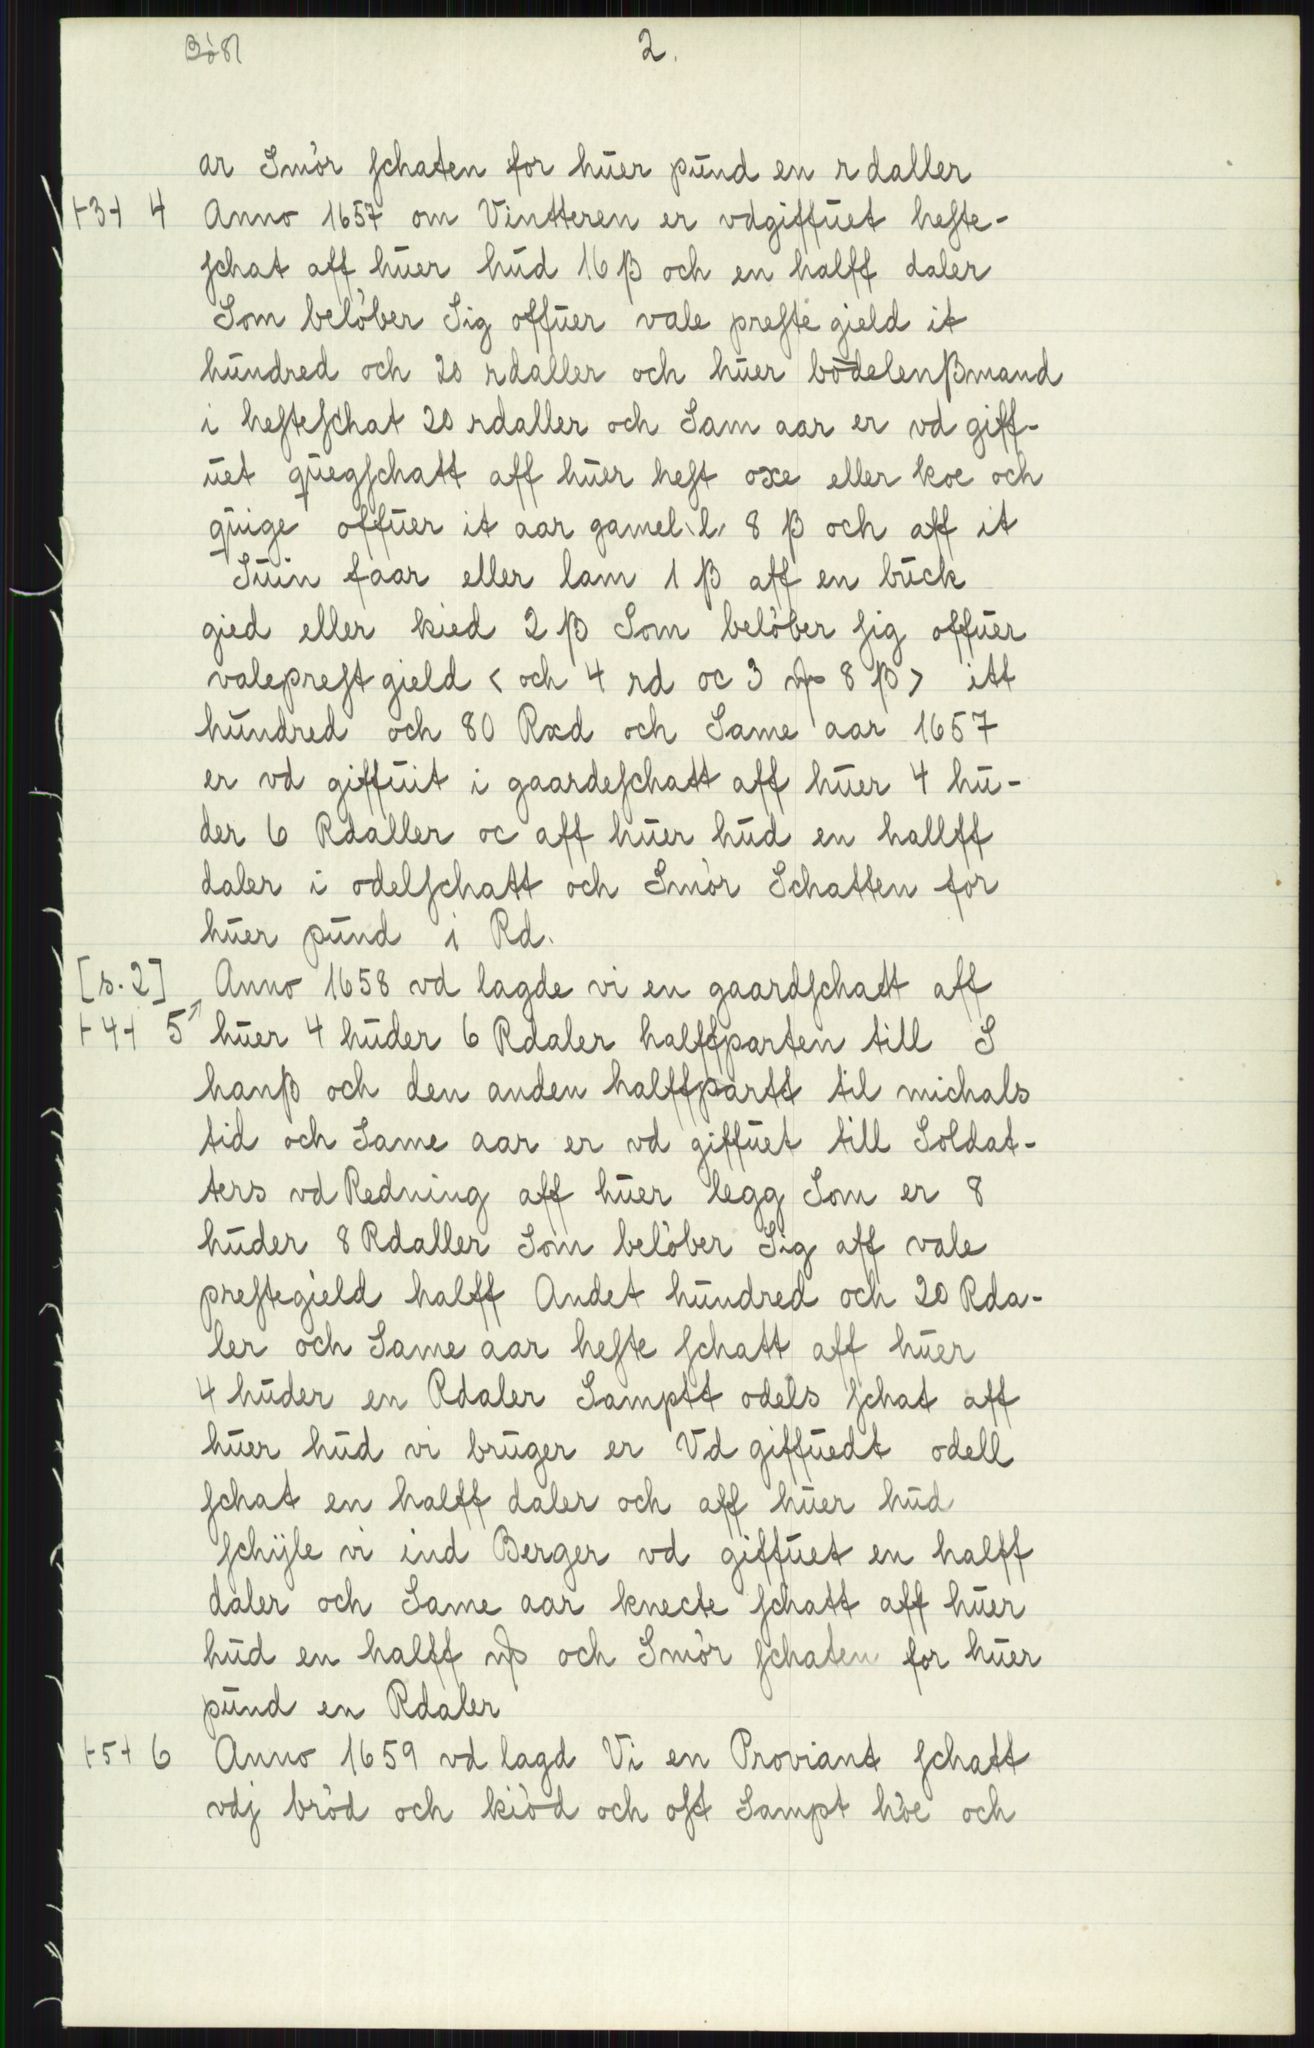 Bö 81
2.
ar Smör ſchaten for huer pund en r daller
+3+ 4 Anno 1657 om Vintteren er vdgiffuet heſte-
ſchat aff huer hud 16 β och en halff daler
Som belöber Sig offuer vale preſte gield it
hundred och 20 rdaller och huer bödelenβmand
i heſteſchat 20 rdaller och Sam aar er vd giff-
uet quegſchatt aff huer heſt oxe eller koe och
quige offuer it aar gamel\l/ 8 β och aff it
Suin faar eller lam 1 β aff en buck
gied eller kied 2 β Som belöber ſig offuer
valepreſt gield < och 4 rd oc 3 mþ 8 β> itt
hundred och 80 Rxd och Same aar 1657
er vd giffuit i gaardeſchatt aff huer 4 hu-
der 6 Rdaller oc aff huer hud en hallff
daler i odelſchatt och Smör Schatten for
huer pund i Rd.
[s. 2] Anno 1658 vd lagde vi en gaardſchatt aff
+4+ 5 huer 4 huder 6 Rdaler halffparten till S
hanβ och den anden halffpartt til michals
tid och Same aar er vd giffuet till Soldat-
ters vd Redning aff huer legg Som er 8
huder 8 Rdaller Som belöber Sig aff vale
preſtegield halff Andet hundred och 20 Rda-
ler och Same aar heſte ſchatt aff huer
4 huder en Rdaler Samptt odels ſchat aff
huer hud vi bruger er Vd giffuedt odell
ſchat en halff daler och aff huer hud
ſchÿle vi ind Berger vd giffuet en halff
daler och Same aar knecte ſchatt aff huer
hud en halff mþ och Smör ſchaten for huer
pund en Rdaler
+5+ 6 Anno 1659 vd lagd Vi en Proviant ſchatt
vdj bröd och kiöd och oſt Sampt höe och